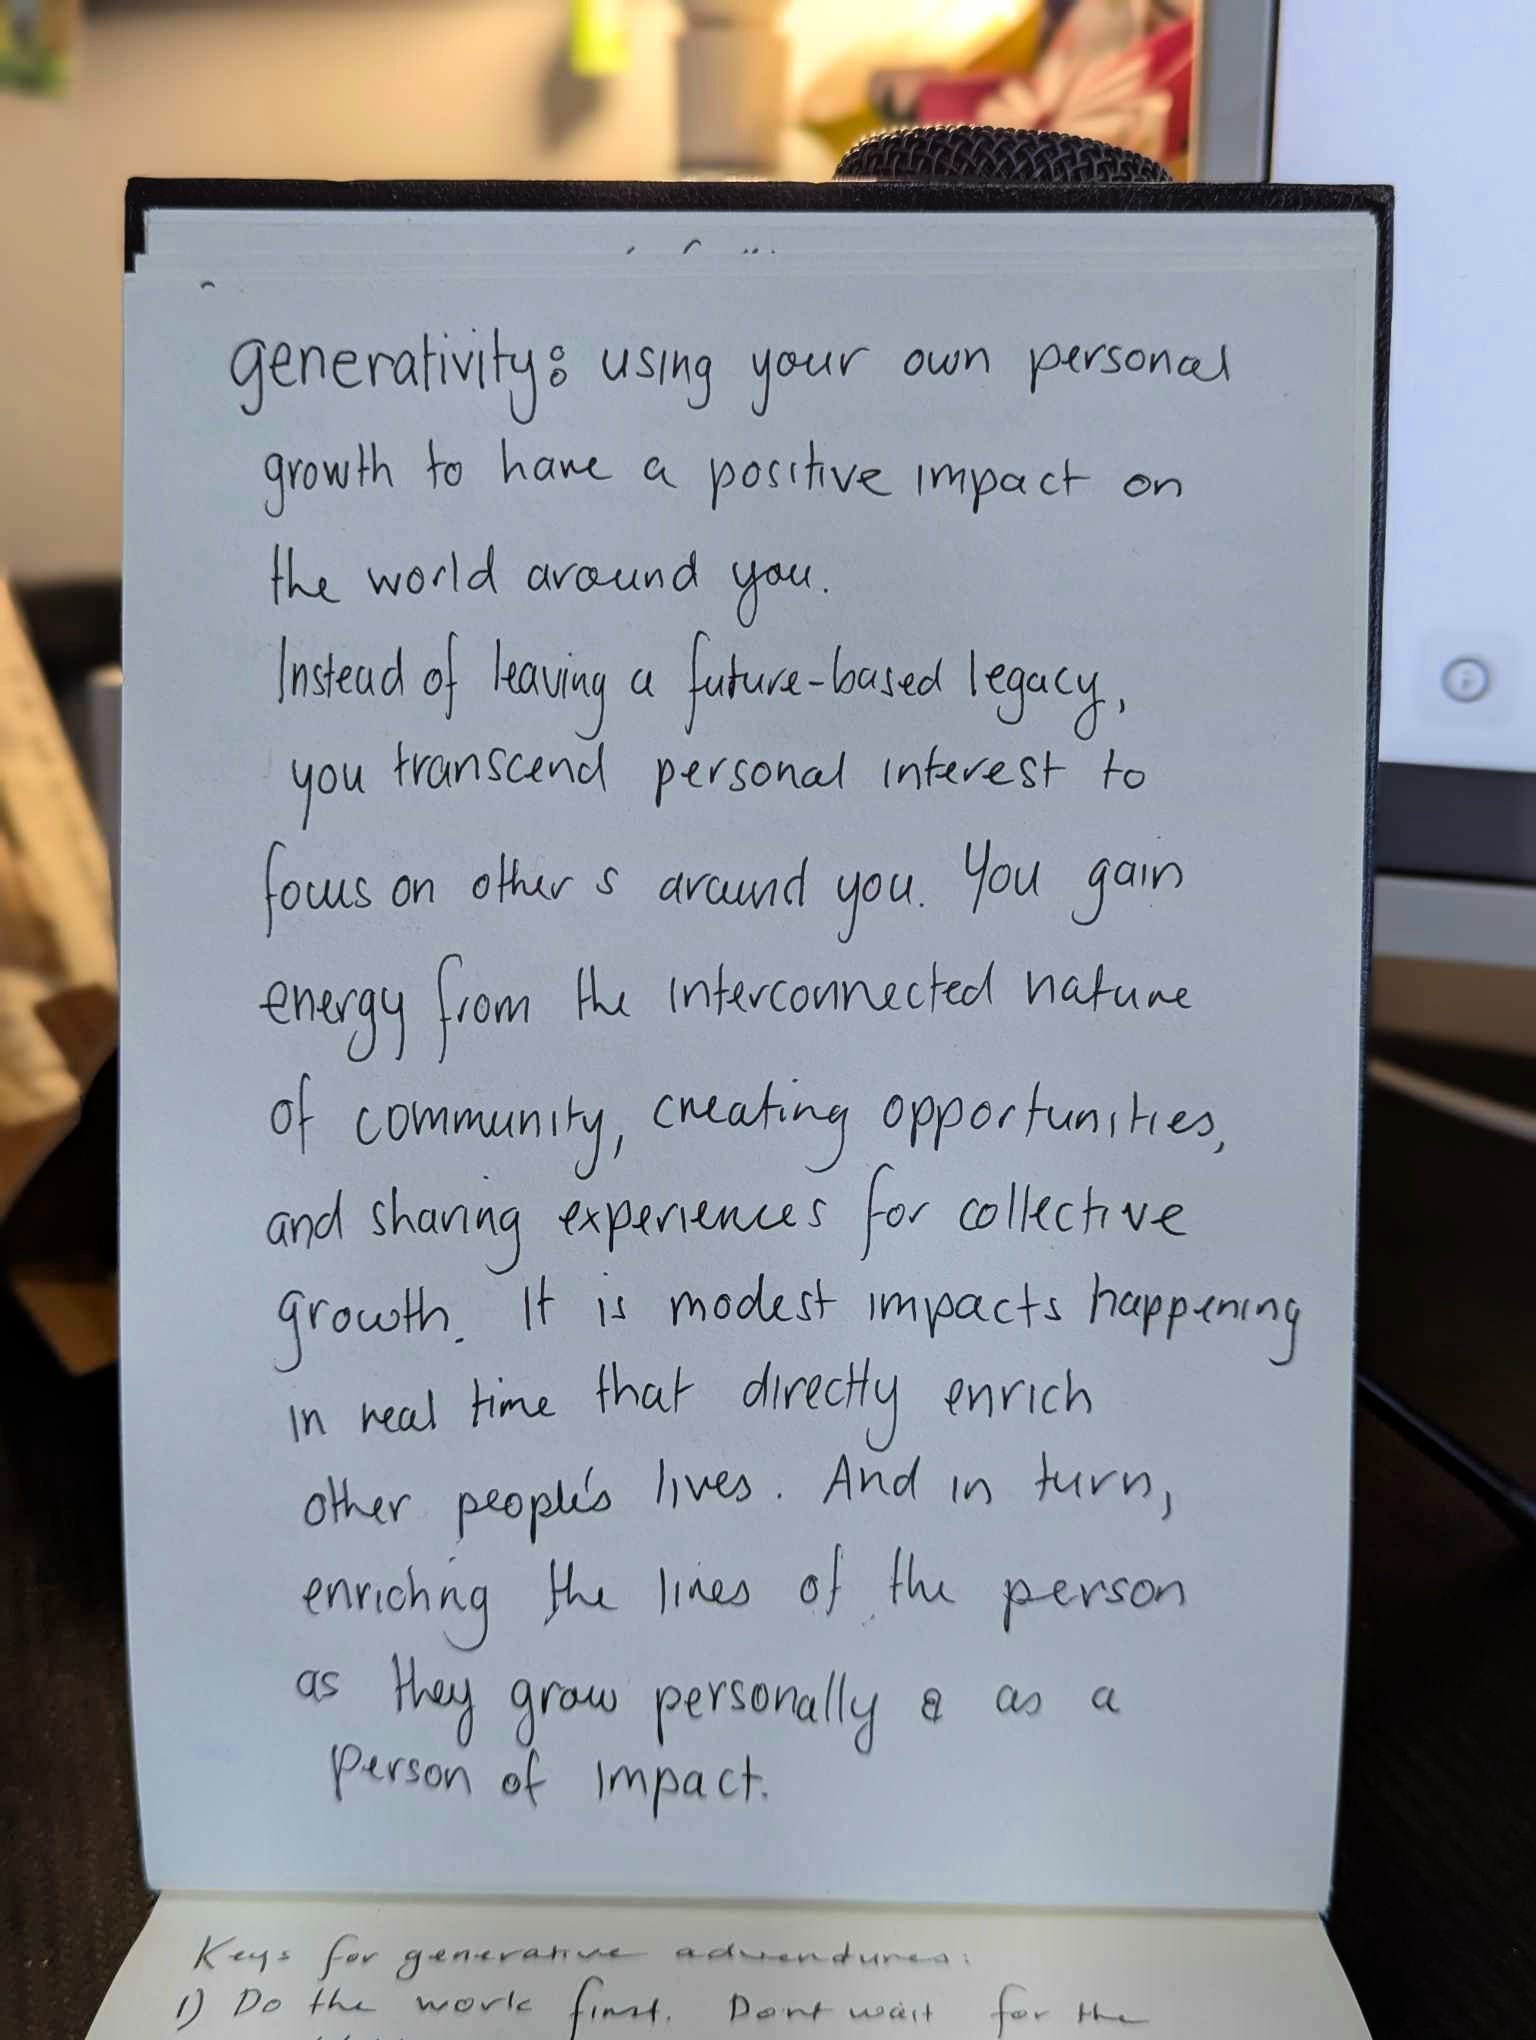 generativity: using your own personal
growth to have a positive impact on
the world around you.
Instead of leaving a future-based legacy,
you transcend personal interest to
focus on others around you. You gain
energy from the interconnected nature
of community, creating opportunities,
and sharing experiences for collective
growth. It is modest impacts happening
in real time that directly enrich
other people's lives. And in turn,
enriching the lives of the person
as they grow personally & as a
person of impact.
Keys for generative adventures:
1) Do the work first. Dont wait for the